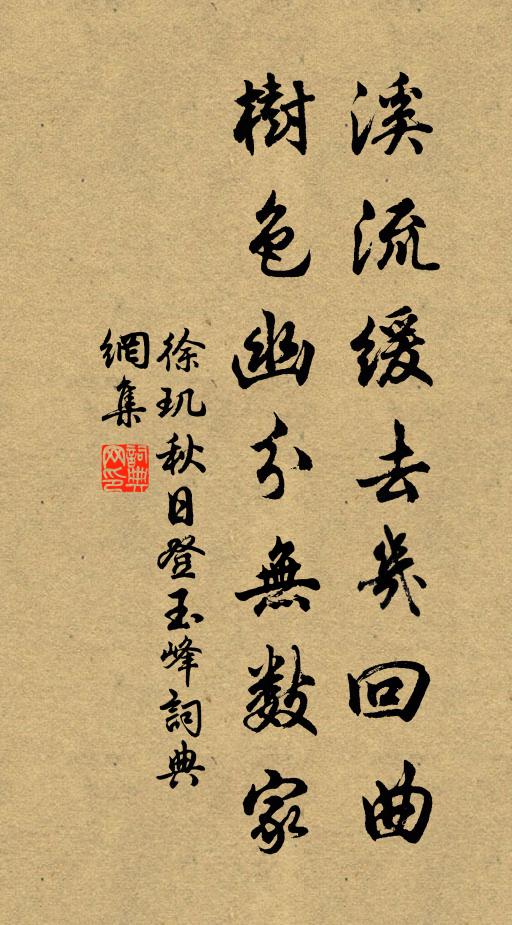 溪流緩去幾回曲
樹色幽分無數家
徐玑秋日登玉峰詞典
網集
詞典网印